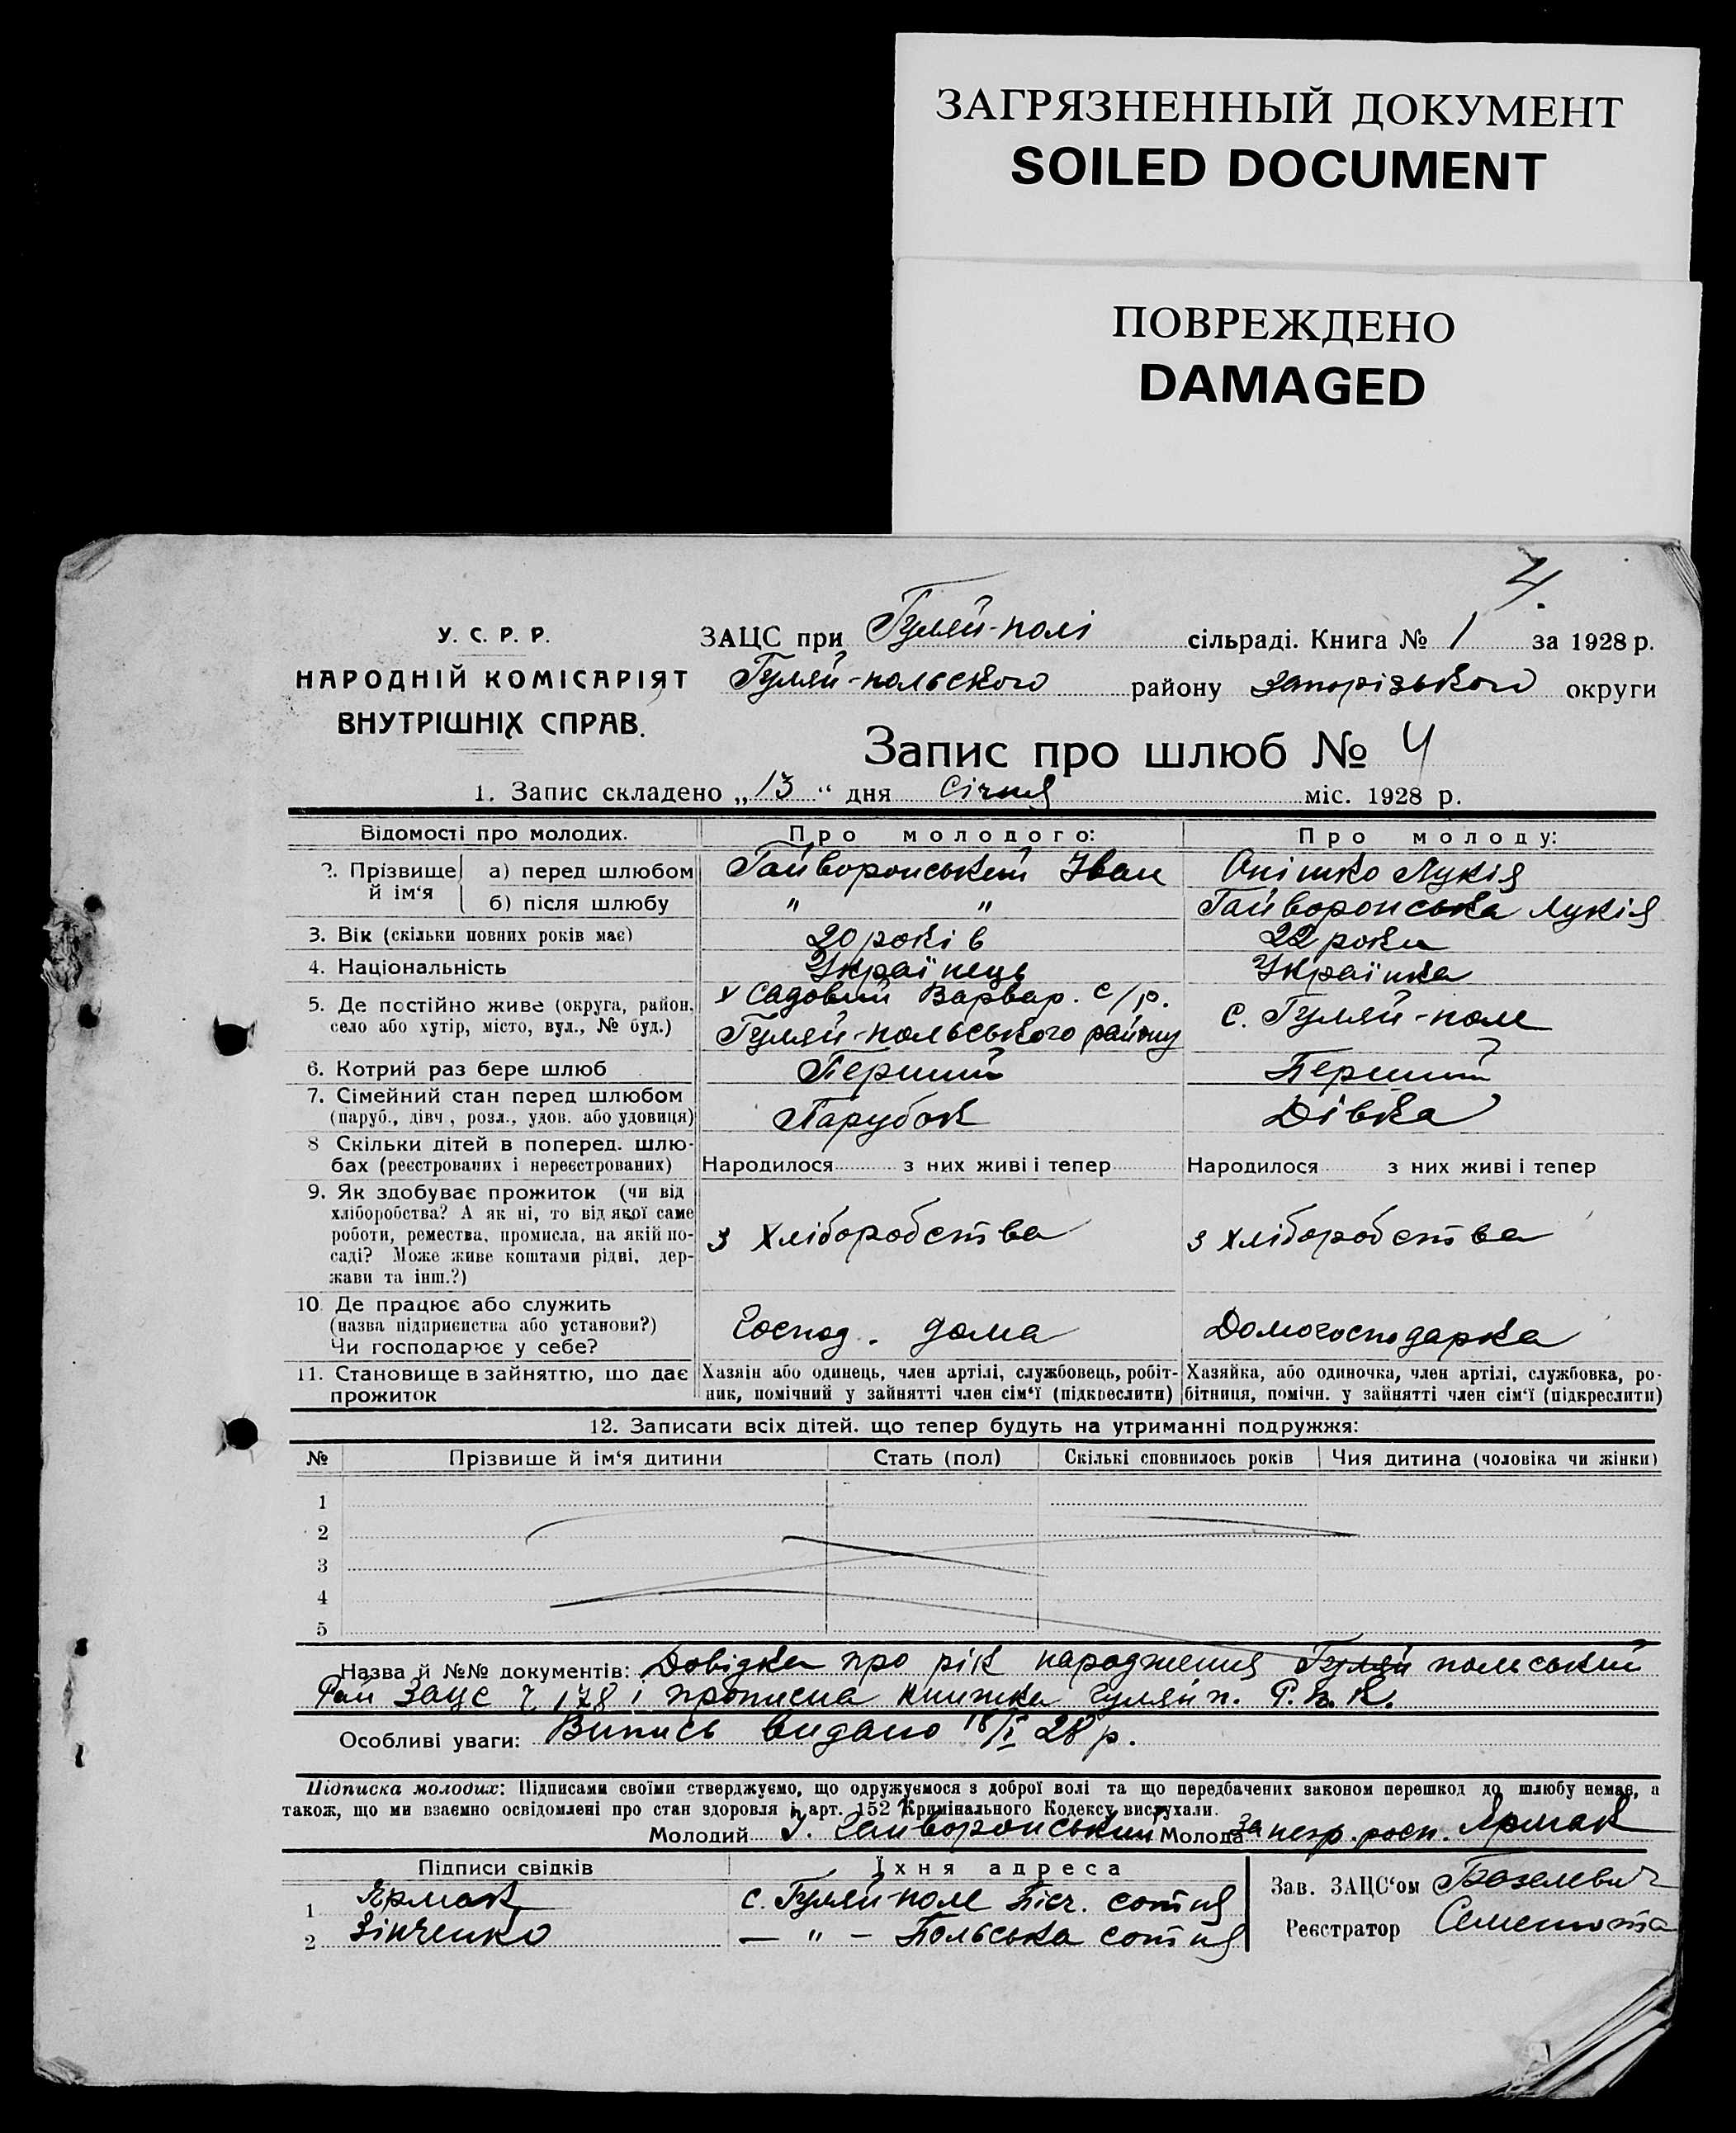 ЗАГРЯЗНЕННЫЙ ДОКУМЕНТ
SOILED DOCUMENT
ПОВРЕЖДЕНО
DAMAGED
4.
У. С. Р. Р.
НАРОДНІЙ КОМІСАРІЯТ
ВНУТРІШНІХ СПРАВ.
ЗАЦС при Гуляй-полі сільраді. Книга № 1 за 1928 р.
Гуляй-польского району Запорізького округи
Запис про шлюб № 4
1. Запис складено „13“ дня Січня міс. 1928 р.
Відомості про молодих. Про молодого: Про молоду:
2. Прізвище й ім‘я а) перед шлюбом Гайворонський Іван Онішко Лукія
б) після шлюбу " " Гайворонська Лукія
3. Вік (скільки повних років має) 20 років 22 роки
4. Національність Українець Українка
5. Де постійно живе (округа, район, село або хутір, місто, вул., № буд.) х Садовий Варвар. с/р. Гуляй-польського району с. Гуляй-поле
6. Котрий раз бере шлюб Перший Перший
7. Сімейний стан перед шлюбом (паруб., дівч., розл., удов. або удовиця) Парубок Дівка
8 Скільки дітей в поперед. шлюбах (реєстрованих і нереєстрованих) Народилося з них живі і тепер Народилося з них живі і тепер
9. Як здобуває прожиток (чи від хліборобства? А як ні, то від якої саме роботи, ремества, промисла, на якій посаді? Може живе коштами рідні, держави та інш.?) з Хліборобства з хліборобства
10. Де працює або служить (назва підприєиства або установи?) Чи господарює у себе? Господ. дома Домогосподарка
11. Становище в зайняттю, що дає прожиток Хазяін або одинець, член артілі, службовець, робітник, помічний у зайнятті член сім‘ї (підкреслити) Хазяйка, або одиночка, член артілі, службовка, робітниця, помічн. у зайнятті член сім‘ї (підкреслити)
12. Записати всіх дітей, що тепер будуть на утриманні подружжя:
№ Прізвише й ім‘я дитини Стать (пол) Скількі сповнилось років Чия дитина (чоловіка чи жінки)
1
2
3
4
5
Назва й №№ документів: Довідка про рік народження Гуляй польський
Рай Зацс ч 178 і прописна книжка Гуляйп. Р.В.К.
Особливі уваги: Випись видано 18/I 28 р.
Підписка молодих: Підписами своїми стверджуємо, що одружуємося з доброї волі та що передбачених законом перешкод до шлюбу немає, а
також, що ми взаємно освідомлені про стан здоровля і арт. 152 Кримінального Кодексу вислухали.
Молодий І. Гайворонський Молода за негр. росп. Ярмак
Підписи свідків Їхня адреса
1 Ярмак с. Гуляй-поле Піск. сотня
2 Зінченко — " — Польська сотня
Зав. ЗАЦС‘ом Базелевич
Реєстратор